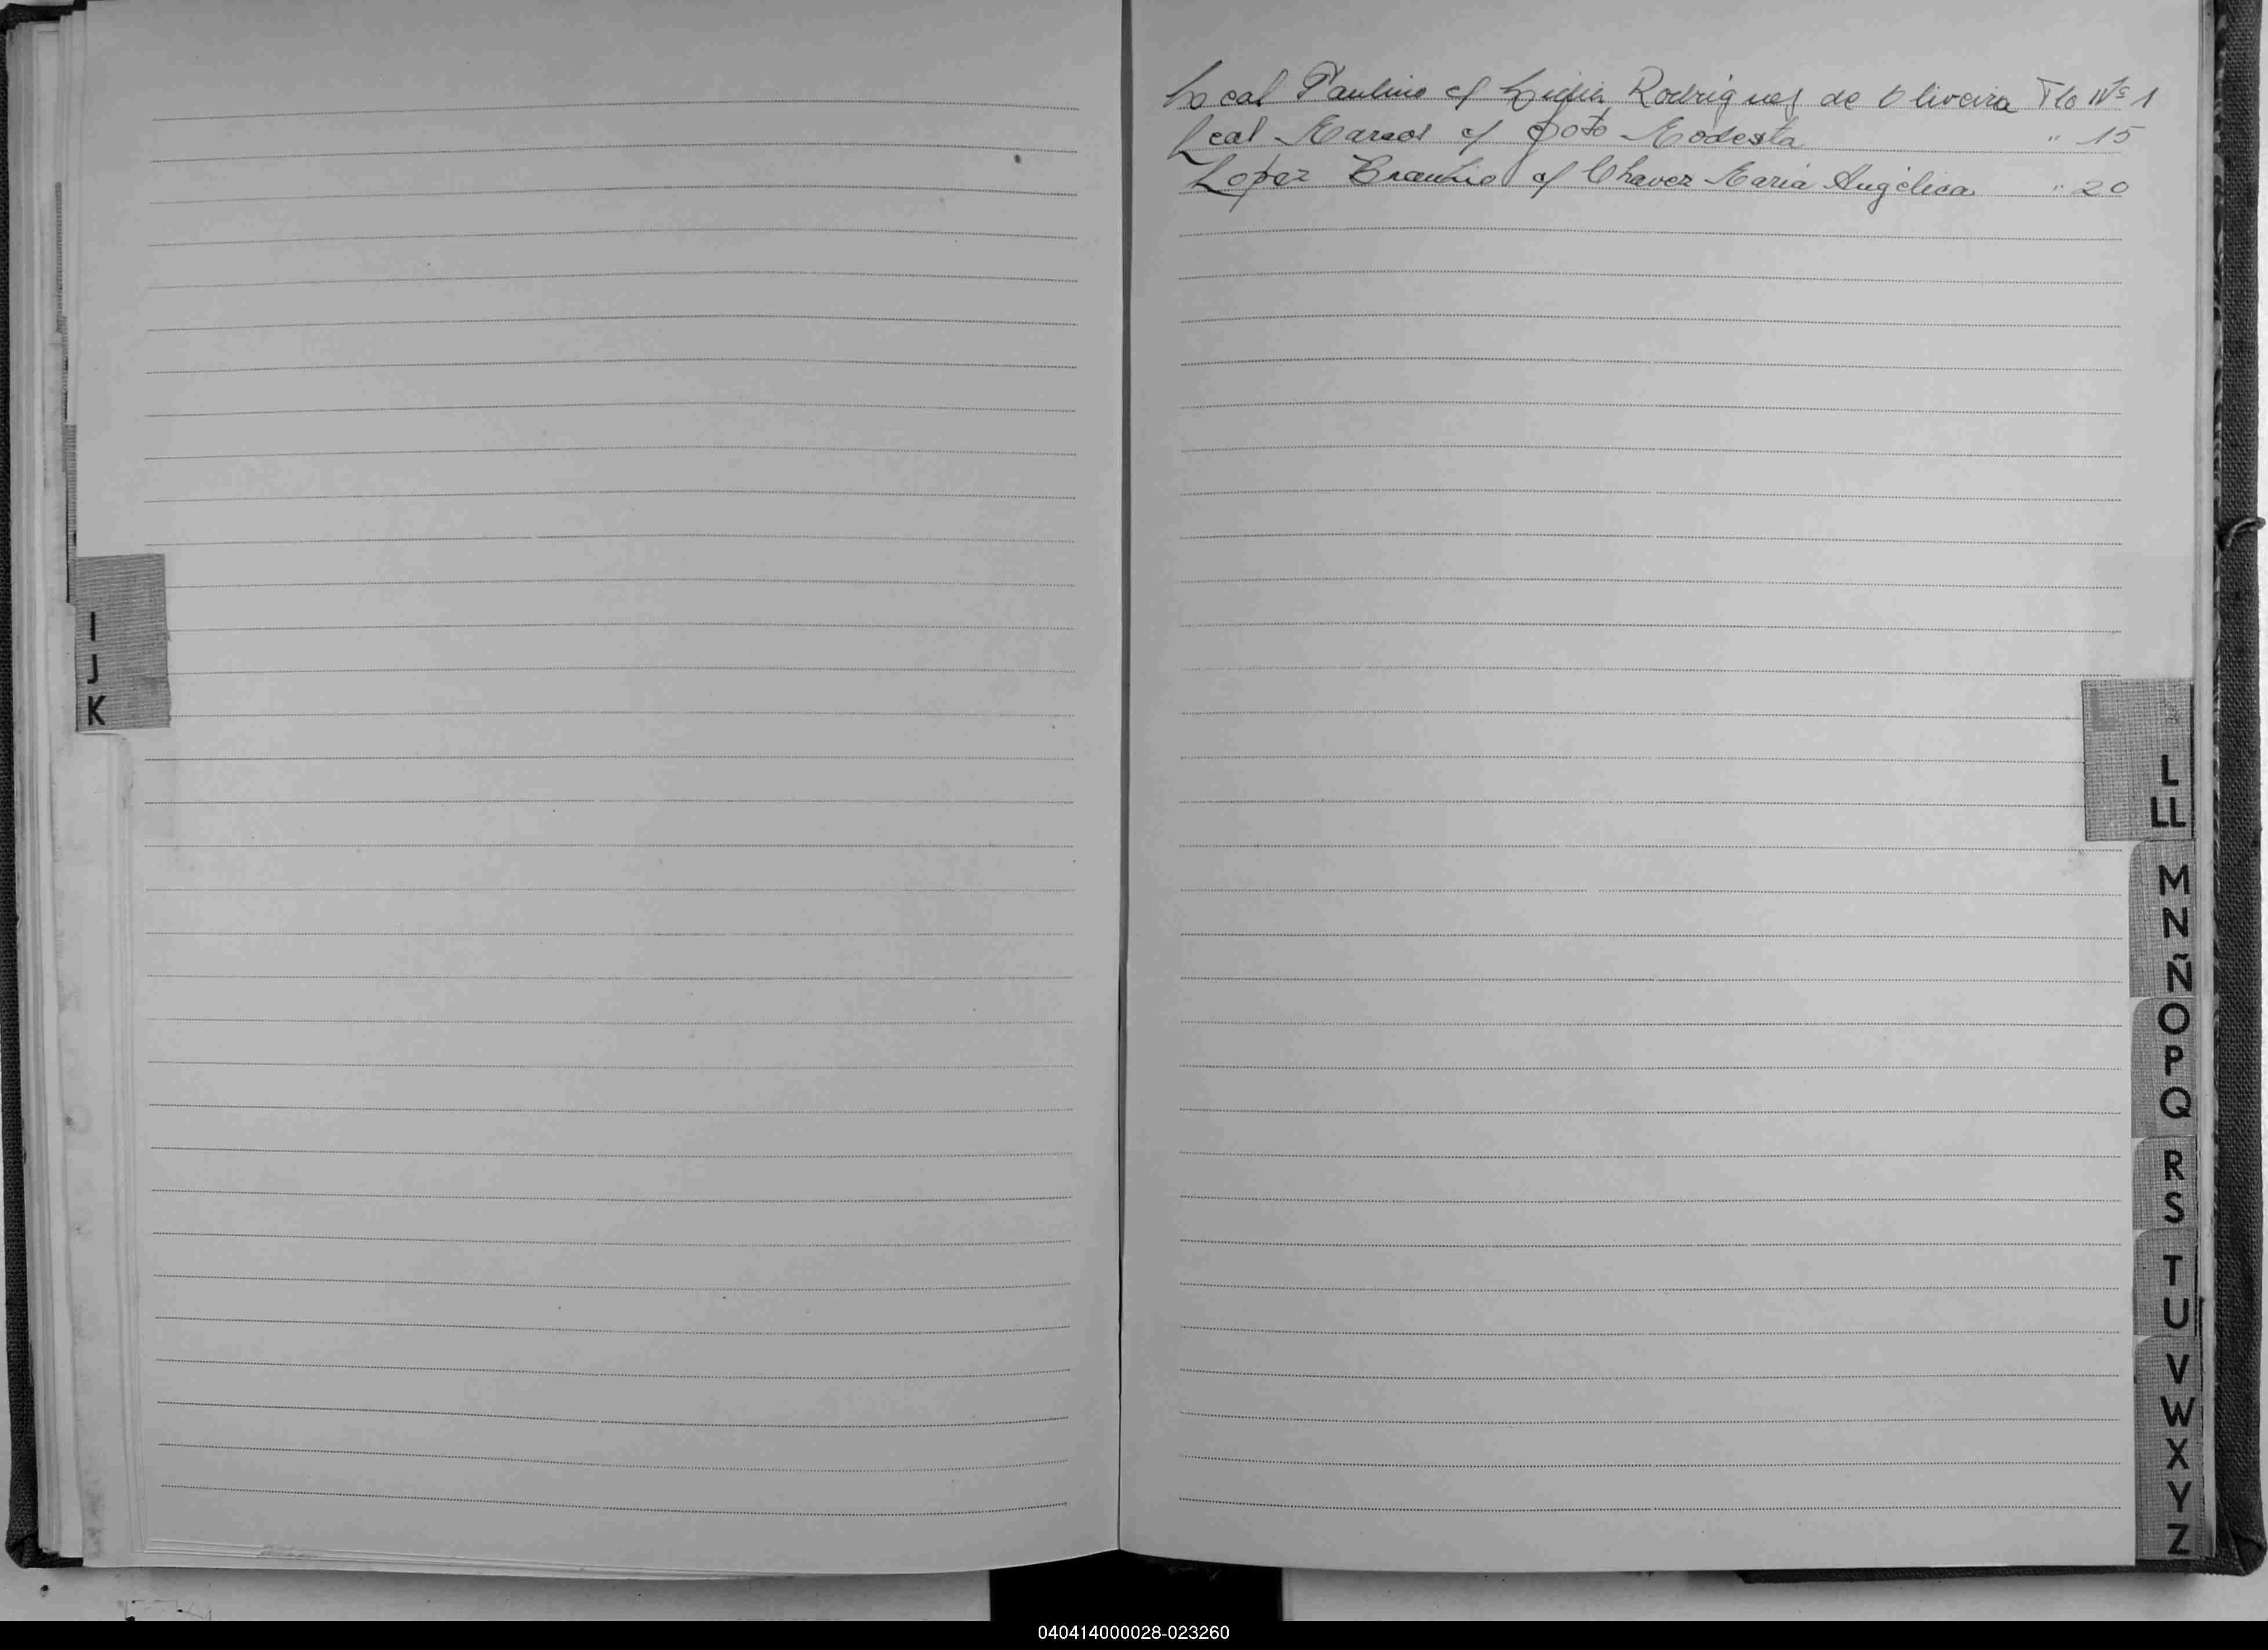 I
J
K
Leal Paulino c/ Lidia Rodrigues de Oliveira Flo Nº 1
Leal Marcos c/ Soto Modesta " 15
Lopez Braulio c/ Chavez Maria Angélica " 20
L
LL
M
N
Ñ
O
P
Q
R
S
T
U
V
W
X
Y
Z
040414000028-023260